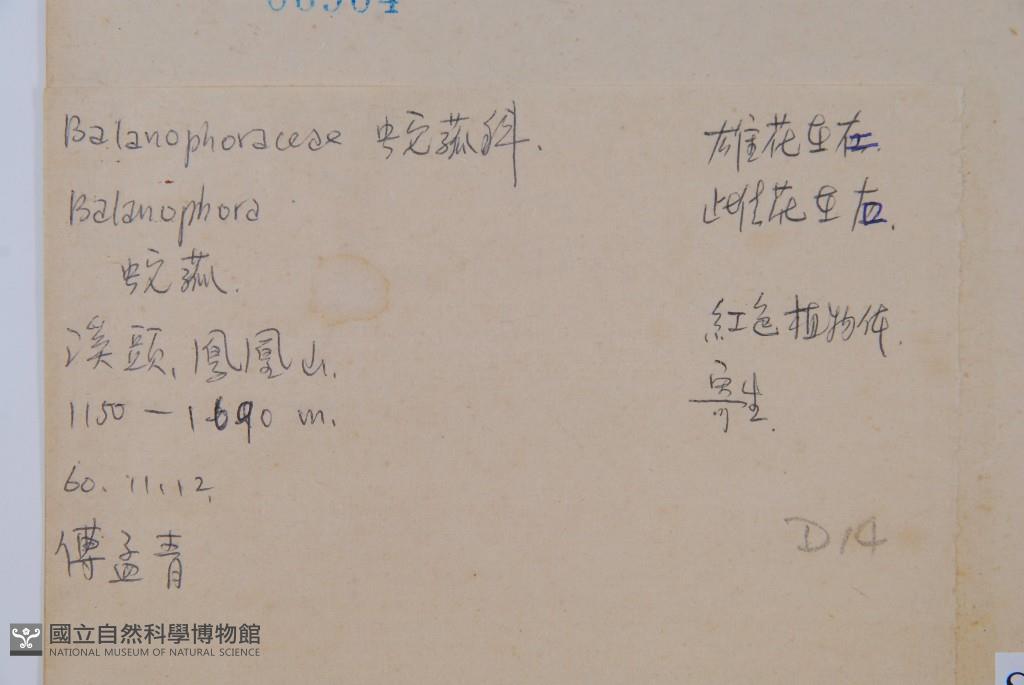 Balanophoraceae 蛇菰科.
Balanophora
蛇菰.
溪頭、鳳凰山.
1150 — 1690 m.
60. 11. 12.
傅孟青
雄花生左.
雌花生右.
紅色植物体.
寄生.
D14
國立自然科學博物館
NATIONAL MUSEUM OF NATURAL SCIENCE